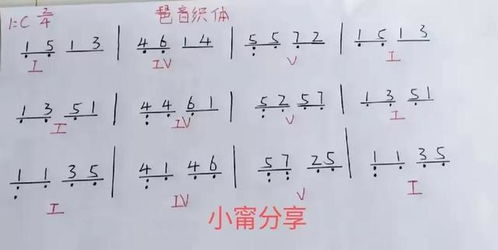 1=C 2/4 琶音织体
1 5 1 3 | 4 6 1 4 | 5 5 7 2 | 1 5 1 3
I IV V I
1 3 5 1 | 4 4 6 1 | 5 2 5 7 | 1 3 5 1
I IV V I
1 1 3 5 | 4 1 4 6 | 5 7 2 5 | 1 1 3 5
I IV V I
小甯分享